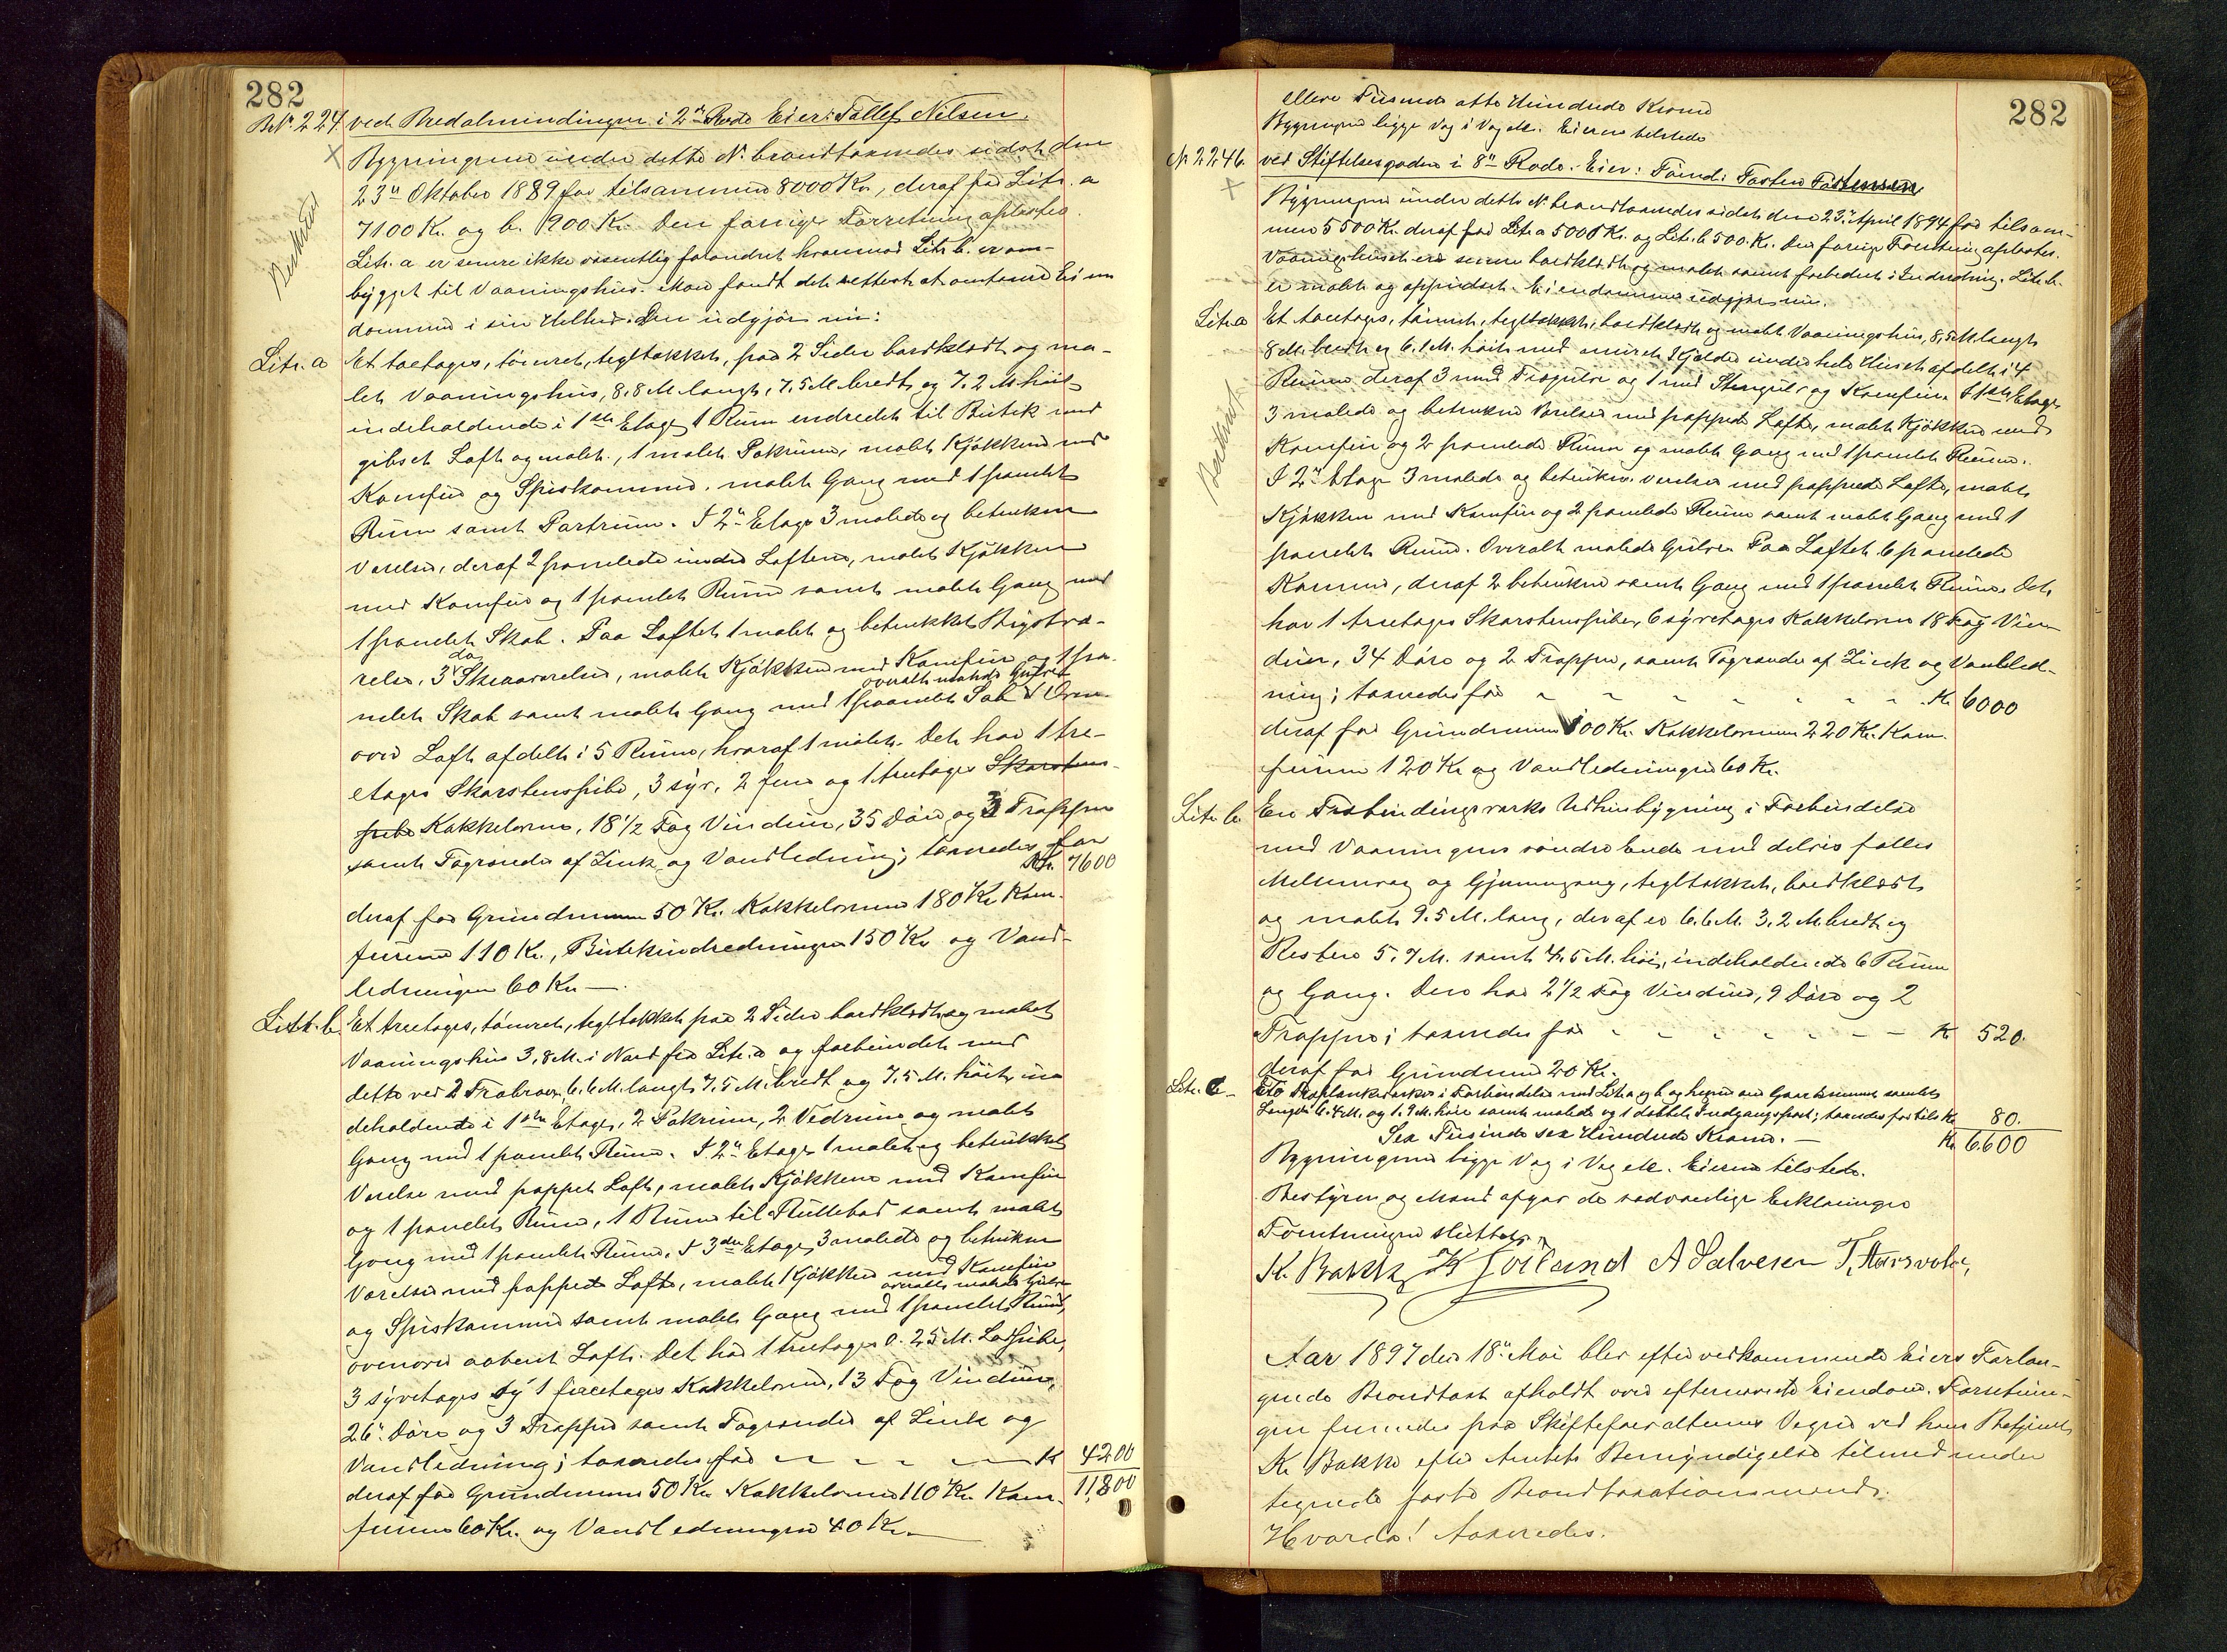 282
B.Nº 224. ved Bredalmindingen i 2den Rode Eier: Tollef Nilsen.
Bygningerne under dette N. brandtaxeredes sidst den
23de Oktober 1889 for tilsammen 8000 Kr, deraf for Litr. a
7100 Kr. og b. 900 Kr. Den forrige Forretning oplæstes.
Beskrevet
Litr. a er senere ikke væsentlig forandret hvorimod Litr. b. er om-
bygget til Vaaningshus. Man fandt det rettest at omtaxere Eien
dommen i sin Helhed. Den udgjør nu:
Litr. a Et toetages, tømret, tegltækket, paa 2 Sider bordklædt og ma-
let Vaaningshus, 8,8 M. langt, 7,5 M. bredt, og 7,2 M. høit
indeholdende i 1ste Etage 1 Rum indredet til Butik med
gibset Loft og malet, 1 malet Pakrum, malet Kjøkken med
Komfur og Spiskammer, malet Gang med 1 panelet
Rum samt Portrum. I 2den Etage 3 malede og betrukne
Værelser, deraf 2 panelede under Loftene, malet Kjøkken
med Komfur og 1 panelet Rum samt malet Gang med
1 panelet Skab. Paa Loftet 1 malet og betrukket Kvistvæ-
relse, 3 do Skraaværelser, malet Kjøkken med Komfur og 1 pa-
overalt malede Gulve
nelet Skab samt malet Gang med 1 panelet Skab. Oven-
over Loft afdelt i 5 Rum, hvoraf 1 malet. Det har 1 tre-
etages Skorstenspibe, 3 syv, 2 fem og 1 treetages Skorstens-
pibe Kakkelovne, 18 1/2 Fag Vinduer, 35 Døre og 3 Trapper
samt Tagrender af Zink og Vandledning; taxeredes for
Kr. 7600
deraf for Grundmuren 50 Kr. Kakkelovnene 180 Kr. Kom-
furerne 110 Kr., Butikindredningen 150 Kr. og Vand-
ledningen 60 Kr. —
Litr. b. Et treetages, tømret, tegltækket paa 2 Sider bordklædt og malet
Vaaningshus 3,8 M. i Nord fra Litr. a og forbundet med
dette ved 2 Træbroer, 6,6 M. langt, 7,5 M. bredt og 7,5 M. høit, in
deholdende i 1ste Etage, 2 Pakrum, 2 Vedrum og malet
Gang med 1 panelet Rum. I 2den Etage 1 malet og betrukket
Værelse med pappet Loft, malet Kjøkken med Komfur
og 1 panelet Rum, 1 Rum til Rullebod samt malet
Gang med 1 panelet Rum. I 3die Etage, 3 malede og betrukne
Værelser med pappede Lofte, malet Kjøkken med Komfur
overalt malede Gulve
og Spiskammer samt malet Gang med 1 panelet Rum,
ovenover aabent Loft. Det har 1 treetages 0.25 M. Lodpibe,
3 syvetages og 1 fireetages Kakkelovne, 13 Fag Vinduer,
26 Døre og 3 Trapper samt Tagrender af Zink og
Vandledning; taxeredes for — — — — Kr 4200
11,800
deraf for Grundmuren 50 Kr. Kakkelovnene 110 Kr. Kom-
furerne 60 Kr. og Vandledningen 40 Kr. —
282
elleve Tusinde otte Hundrede Kroner
Bygningerne ligge Væg i Væg etc. Eieren tilstede
N. 2246. ved Stiftelsesgaden i 8de Rode. Eier: Tømd: Torsten Torstensen
Bygningerne under dette N. brandtaxeredes sidst den 23de April 1894 for tilsam-
men 5500 Kr. deraf for Litr. a 5000 Kr. og Litr. b. 500. Kr. Den forrige Forretning oplæstes.
Vaaningshuset er senere bordklædt og malet samt forbedret i Indredning. Litr. b.
er malet og oppudset. Eiendommen udgjør nu.
Litr. a Et toetages, tømret, tegltækket, bordklædt og malet Vaaningshus, 8,5 M. langt
8 M. bredt og 6.1 M. høit med muret Kjælder under hele Huset afdelt i 4
Rum deraf 3 med Trægulve og 1 med Stengulv og Komfur. I 1ste Etage
3 malede og betrukne Værelser med pappede Lofte, malet Kjøkken med
Beskrevet
Komfur og 2 panelede Rum og malet Gang med 1 panelet Rum.
I 2den Etage 3 malede og betrukne Værelser med pappede Lofte, malet
Kjøkken med Komfur og 2 panelede Rum samt malet Gang med 1
panelet Rum. Overalt malede Gulve. Paa Loftet 6 panelede
Kamre, deraf 2 betrukne samt Gang med 1 panelet Rum. Det
har 1 treetages Skorstenspibe, 6 syvetages Kakkelovne 18 Fag Vin-
duer, 34 Døre og 2 Trapper, samt Tagrender af Zink og Vandled-
ning; taxeredes for — — — — — — Kr 6000
deraf for Grundmuren 500 Kr. Kakkelovnene 220 Kr. Kom-
furerne 120 Kr. og Vandledningen 60 Kr.
Litr. b. En Træbindingsværks Udhusbygning i Forbindelse
med Vaaningens søndre Ende med delvis fælles
Mellemvæg og Gjennemgang, tegltækket, bordklædt
og malet 9.5 M. lang, deraf er 6.6 M. 3,2 M. bredt og
Resten 5.7 M. samt 4.5 M. høi, indeholdende 6 Rum
og Gang. Den har 2 1/2 Fag Vinduer, 9 Døre og 2
Trapper; taxeredes for — — — — — — Kr 520.
deraf for Grundmur 20 Kr.
Litr. c — To Træplankeværker i Forbindelse med Litr. a og b. og hegne om Gaardsrummet samlet
Længde 6.4 M. og 1.9 M. høie samt malede og 1 dobbelt Indgangsport; taxeredes for tils. Kr 80.
Sex Tusinde sex Hundrede Kroner. — Kr 6,600
Bygningerne ligge Væg i Væg etc. Eieren tilstede.
Bestyren og Mænd afgav de sædvanlige Erklæringer
Forretningen sluttet.
K. Bakke A Salvesen T. Aarsvold,
Aar 1897 den 18de Mai blev efter vedkommende Eiers Forlan-
gende Brandtaxt afholdt over efternævnte Eiendom. Forretnin-
gen fremmedes paa Skifteforvalterens Vegne ved hans Betjent
K. Bakke efter Amtets Bemyndigelse tilmed under
tegnede faste Brandtaxationsmænd.
Hvorda! taxeredes.